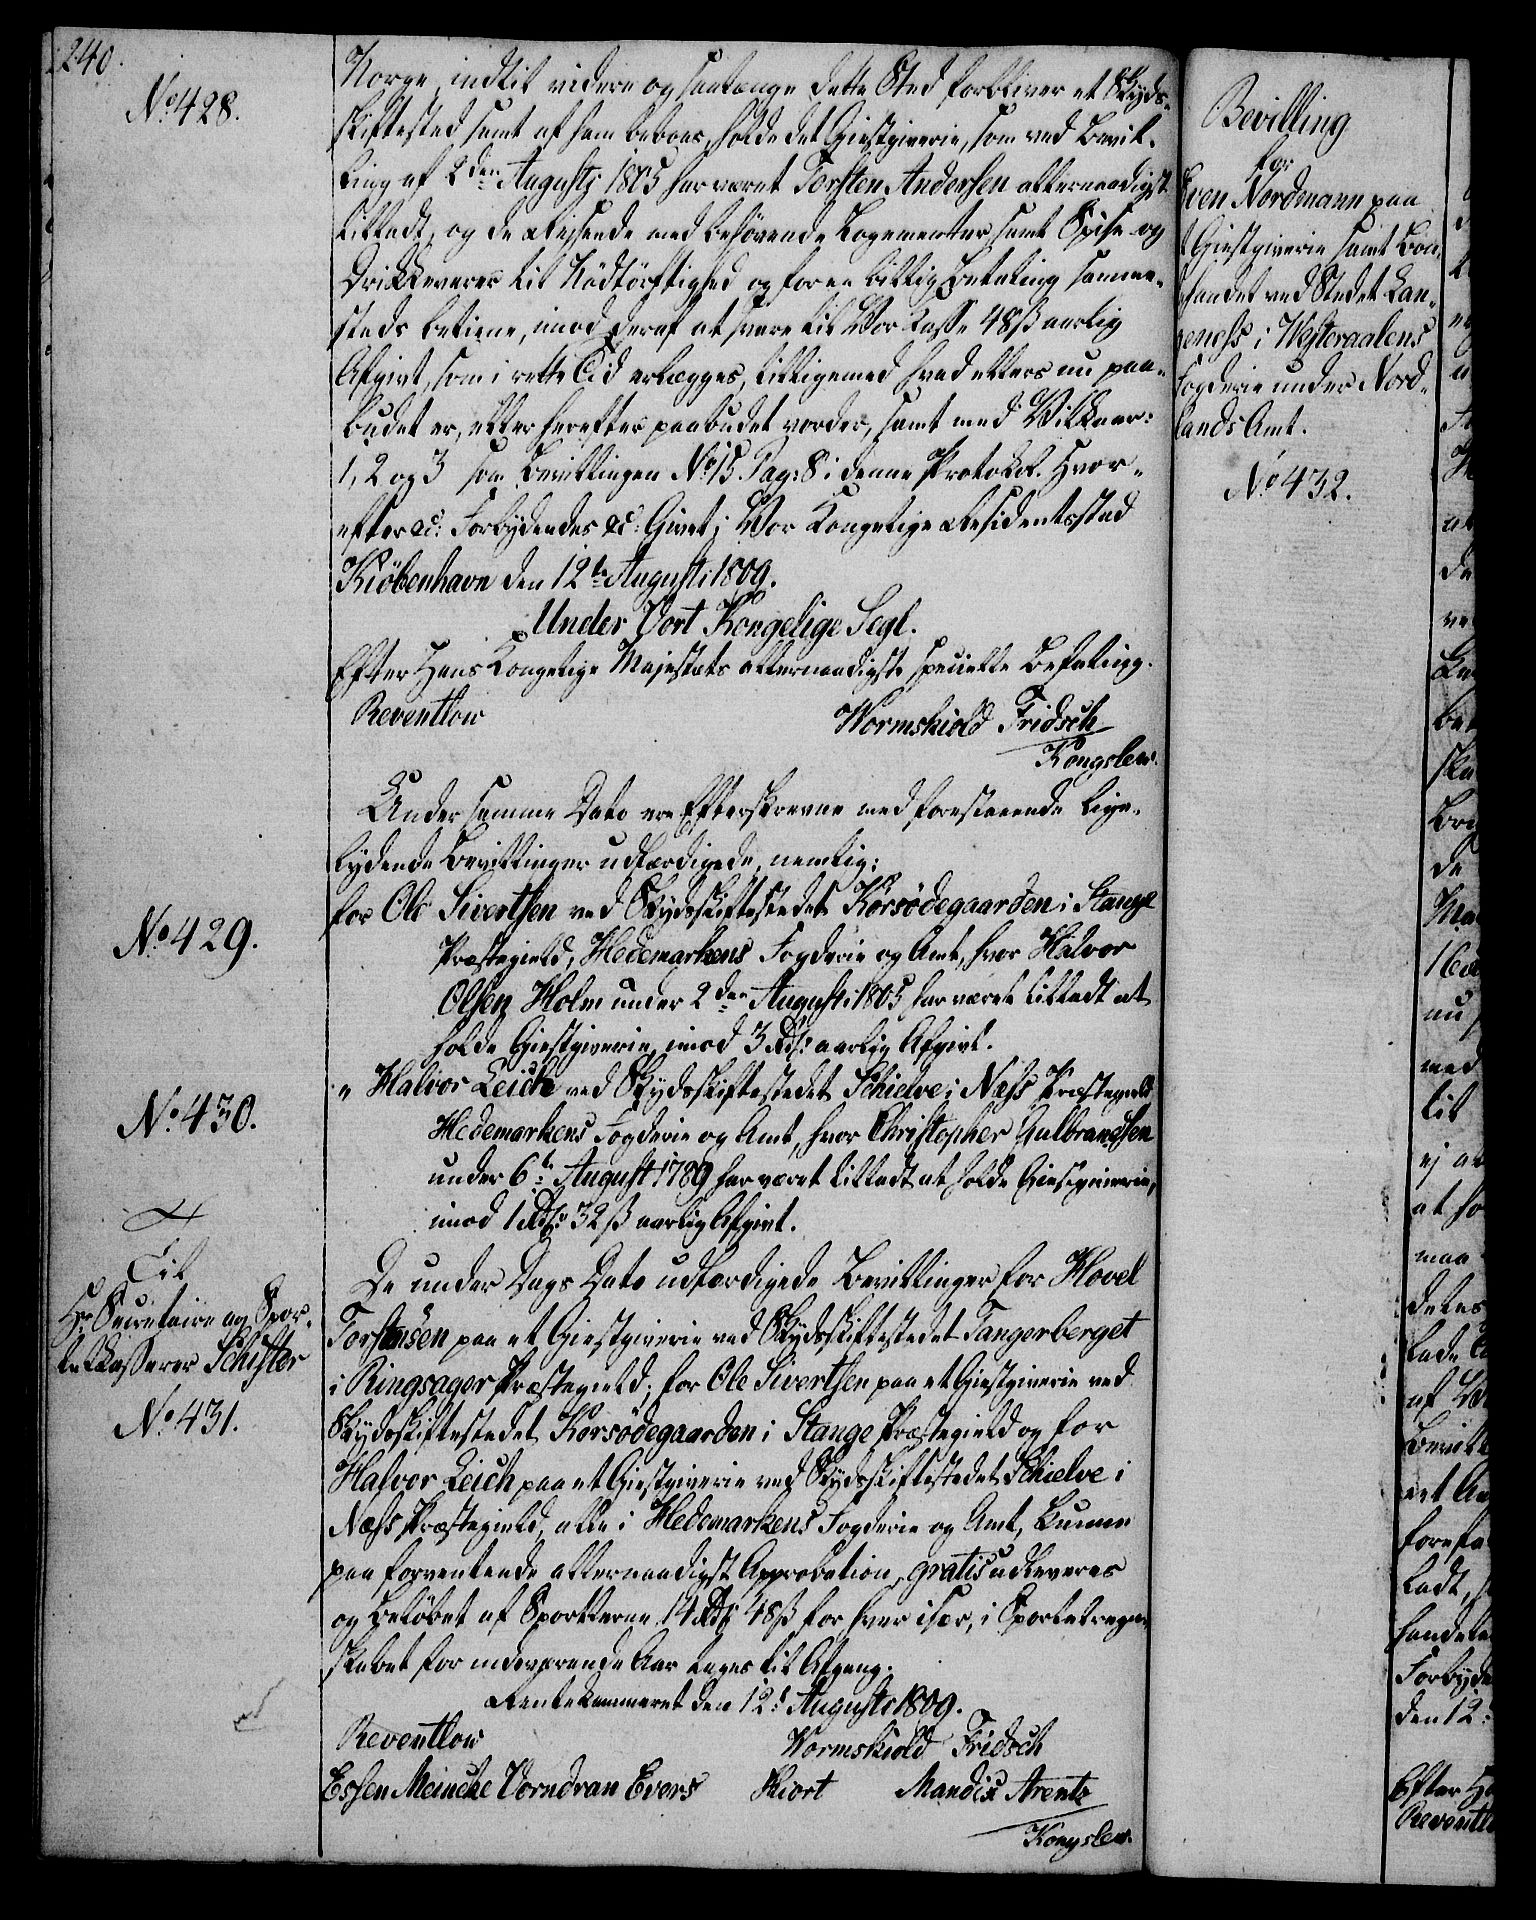 240.
No 428.
Norge, indtil videre og saalænge dette Sted forbliver et Skyds-
skiftested samt af ham beboes, holde det Giestgiverie, som ved Bevil-
ling af 2den August 1805 har været Torsten Andersen allernaadigst
tilladt, og de Reisende med behøvende Logementer samt Spise og
Drikkevarer til Nödtörftighed og for en billig Betaling samme-
steds betiene, imod deraf at svare til Vor Casse 48 ß aarlig
Afgivt, som i rette Tid erlægges, tilligemed hvad ellers nu paa-
budet er, eller herefter paabudet vorder, samt med Vilkaar:
1, 2 og 3 som Bevillingen No 15 Pag: 8 i denne Protokol. Hvor-
efter &c: Forbydendes &c: Givet i Vor Kongelige Residentsstad
Kiöbenhavn den 12te August 1809.
Under Vort Kongelige Segl.
Efter Hans Kongelige Majestæts allernaadigste specielle Befaling.
Reventlow
Wormskiold Fridsch
Kongslew.
Under samme Dato ere Efterskrevne med forestaaende lige-
lydende Bevillinger udfærdigede, nemlig:
No 429.
for Ole Sivertsen ved Skydsskiftestedet Korsödegaarden i Stange
Præstegield, Hedemarkens Fogderie og Amt, hvor Halvor
Olsen Holm under 2den August 1805 har været tilladt at
holde Giestgiverie, imod 3 Rd: aarlig Afgivt.
No 430.
" Halvor Leich ved Skydsskiftestedet Schielve i Næss Præstegield
Hedemarkens Fogderie og Amt, hvor Christopher Gulbrandsen
under 6te August 1789 har været tilladt at holde Giestgiverie,
imod 1 Rd: 32 ß aarlig Afgivt.
Til
Hr Secretaire og Spor-
telkasserer Schister
No 431.
De under Dags Dato udfærdigede Bevillinger for Hovel
Torstensen paa et Giestgiverie ved Skydsskiftestedet Tangerberget
i Ringsager Præstegield; for Ole Sivertsen paa et Giestgiverie ved
Skydsskiftestedet Korsödegaarden i Stange Præstegield og for
Halvor Leich paa et Giestgiverie ved Skydsskiftestedet Schielve i
Næss Præstegield, alle i Hedemarkens Fogderie og Amt, kunne
paa forventende allernaadigst Approbation, gratis udleveres
og Belöbet af Sportlerne 14 Rd: 48 ß for hver især, i Sportelregn-
skabet for indeværende Aar tages til Afgang.
Rentekammeret den 12t August 1809.
Reventlow
Wormskiold Fridsch
Essen Meincke Vorndran Evers Kiort Mandix Arentz
Kongslew.
Bevilling
for
Sven Nordmann paa
t Giestgiverie samt Bon-
handel ved Stedet Lan-
genæss i Westeraalens
Fogderie under Nord-
lands Amt.
No 432.